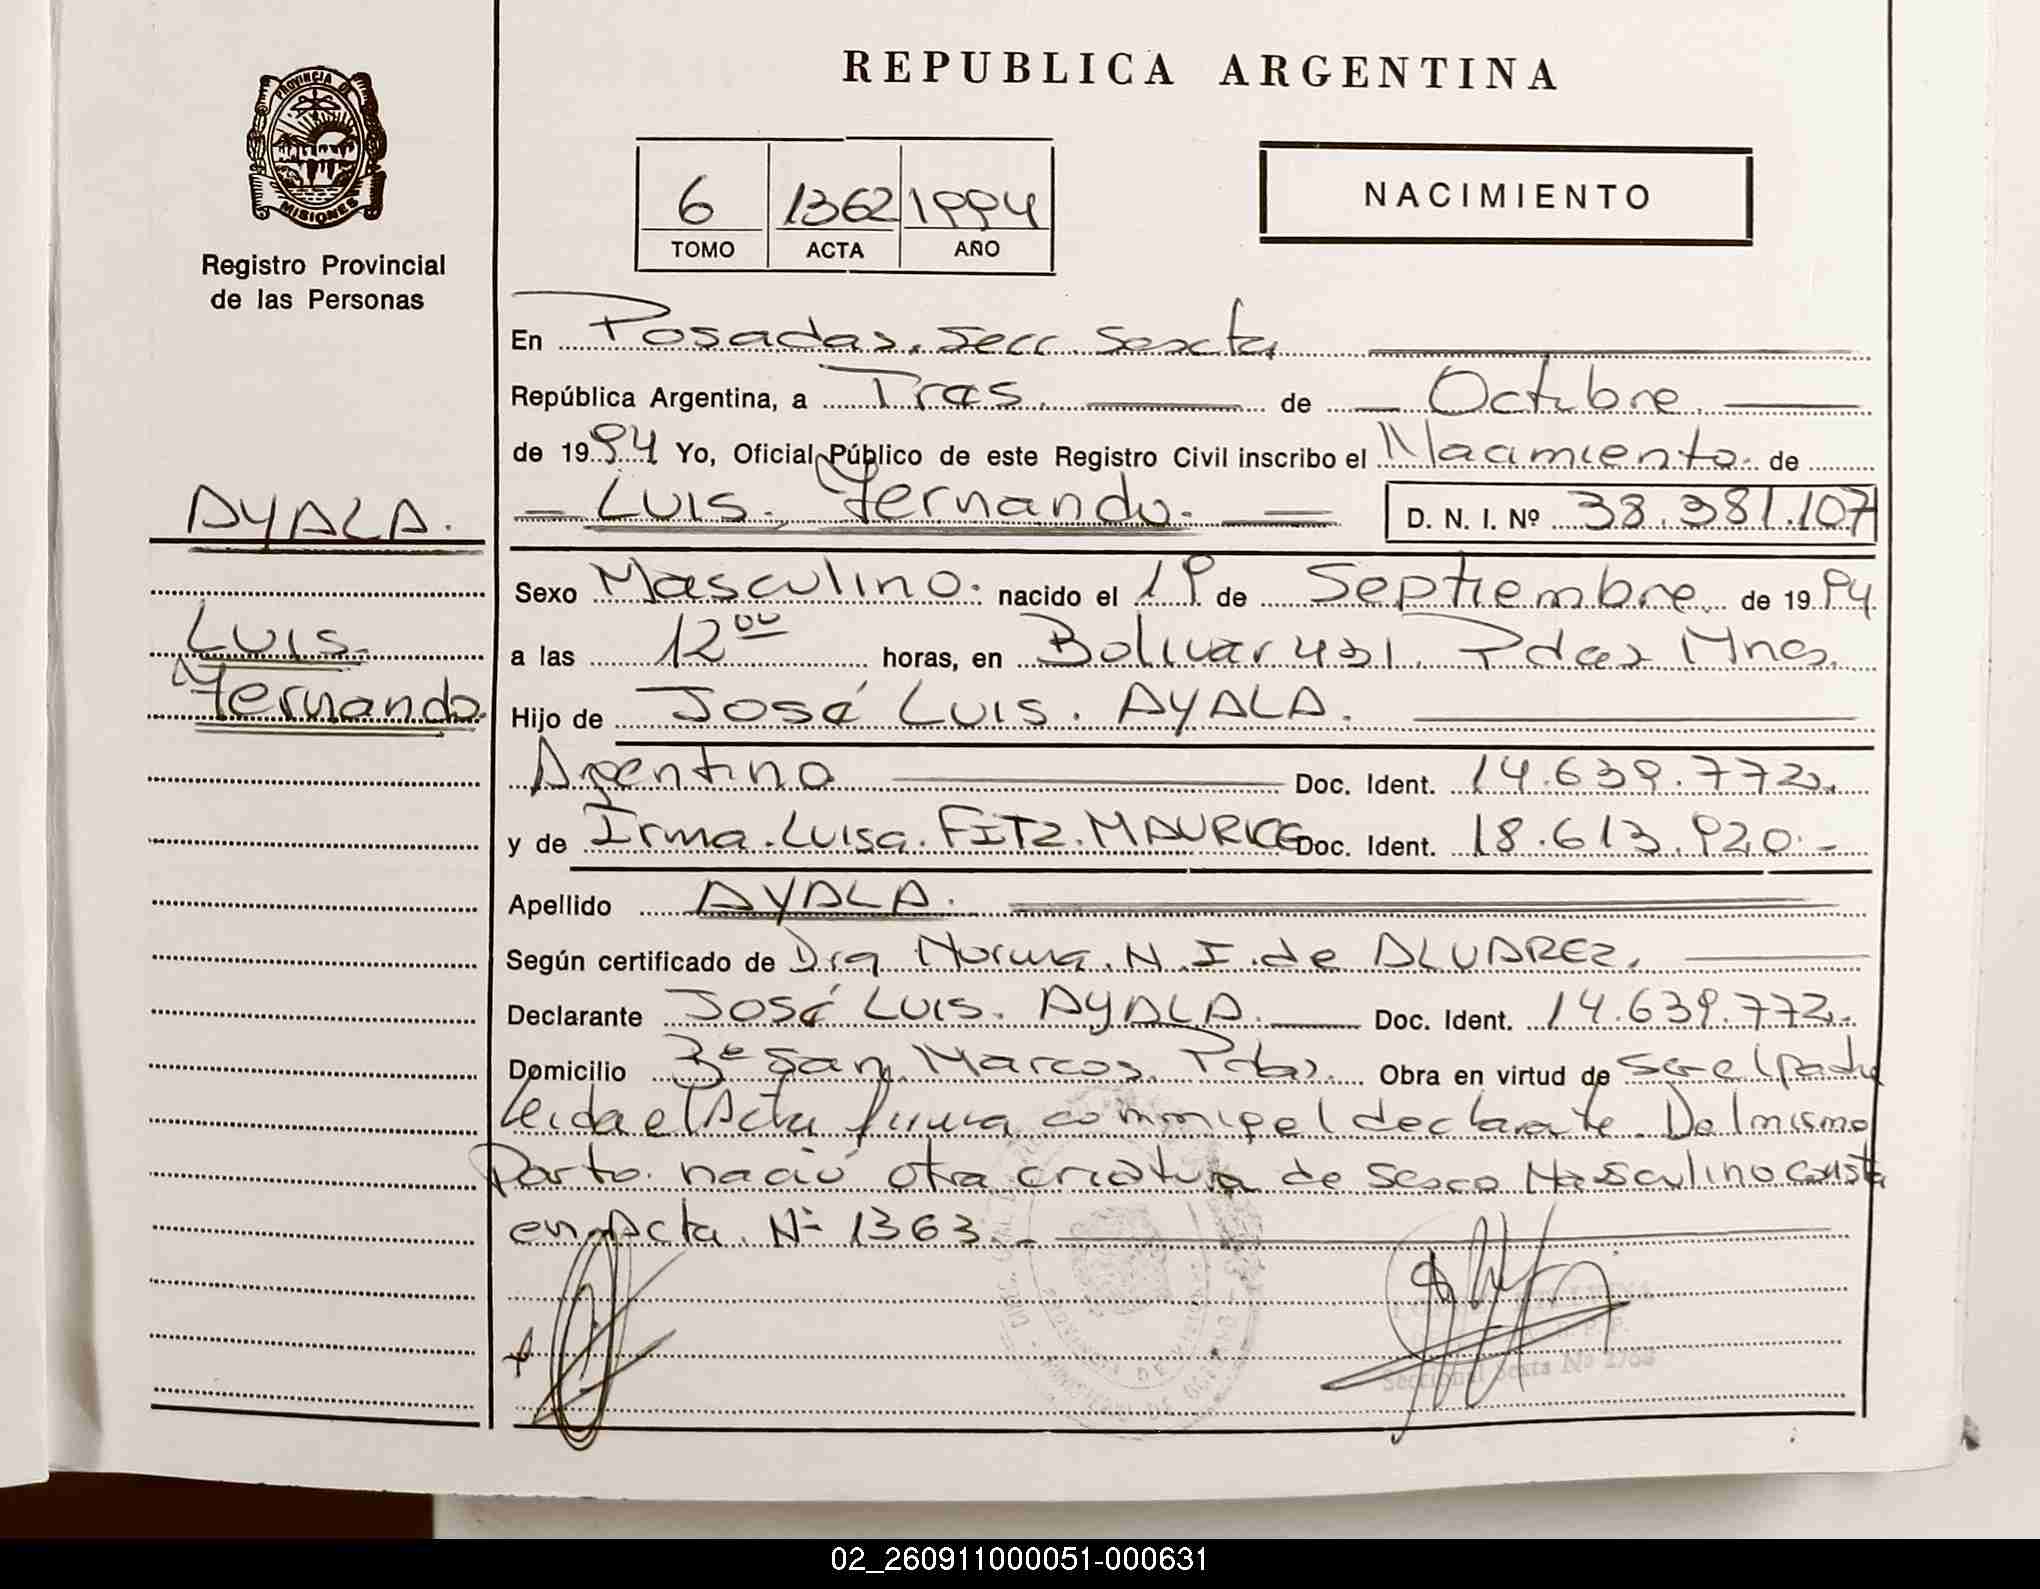 REPUBLICA ARGENTINA
PROVINCIA DE
MISIONES
Registro Provincial
de las Personas
6 1362 1994
TOMO ACTA AÑO
NACIMIENTO
En Posadas, secc. Sexta
República Argentina, a Tres. de Octubre.
de 1994 Yo, Oficial Público de este Registro Civil inscribo el Nacimiento. de
Luis. Fernando. D. N. I. Nº 38.381.107
AYALA.
Luis.
Fernando.
Sexo Masculino. nacido el 19 de Septiembre. de 1994.
a las 12 00 horas, en Bolivar 431. Pdas Mnes.
Hijo de José Luis. AYALA.
Argentino Doc. Ident. 14.639.772.
y de Irma. Luisa. FITZ. MAURICE Doc. Ident. 18.613.920.-
Apellido AYALA.
Según certificado de Dra Norma. N. I. de ALVAREZ.
Declarante José Luis. AYALA. Doc. Ident. 14.639.772.
Domicilio San Marcos. Pdas. Obra en virtud de ser el padre
Leida el Acta firma conmigo el declarante. Del mismo
Parto. nació otra criatura de Sexo Masculino consta
en Acta. Nº 1363.-
Seccional Sexta Nº
02_260911000051-000631